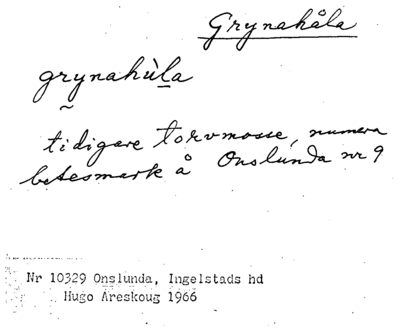 Grynahåla
grynahùla
tidigare torvmosse, numera
betesmark å Onslunda nr 9
Nr 10329 Onslunda, Ingelstads hd
Hugo Areskoug 1966